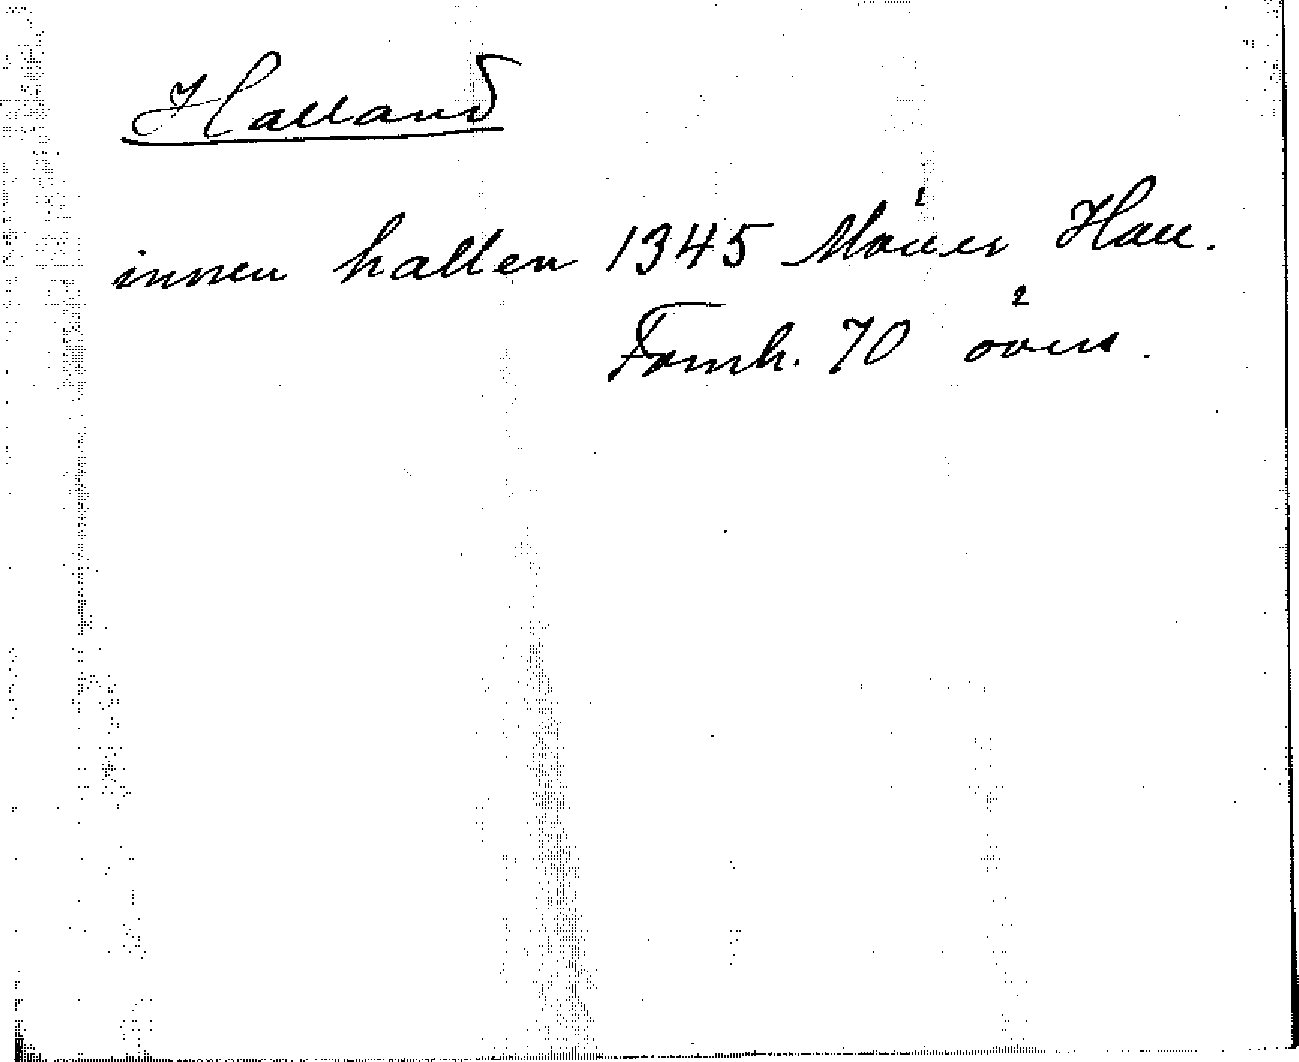 Halland
innen hallen 1345 Hall.
Fornh. 70 övers.